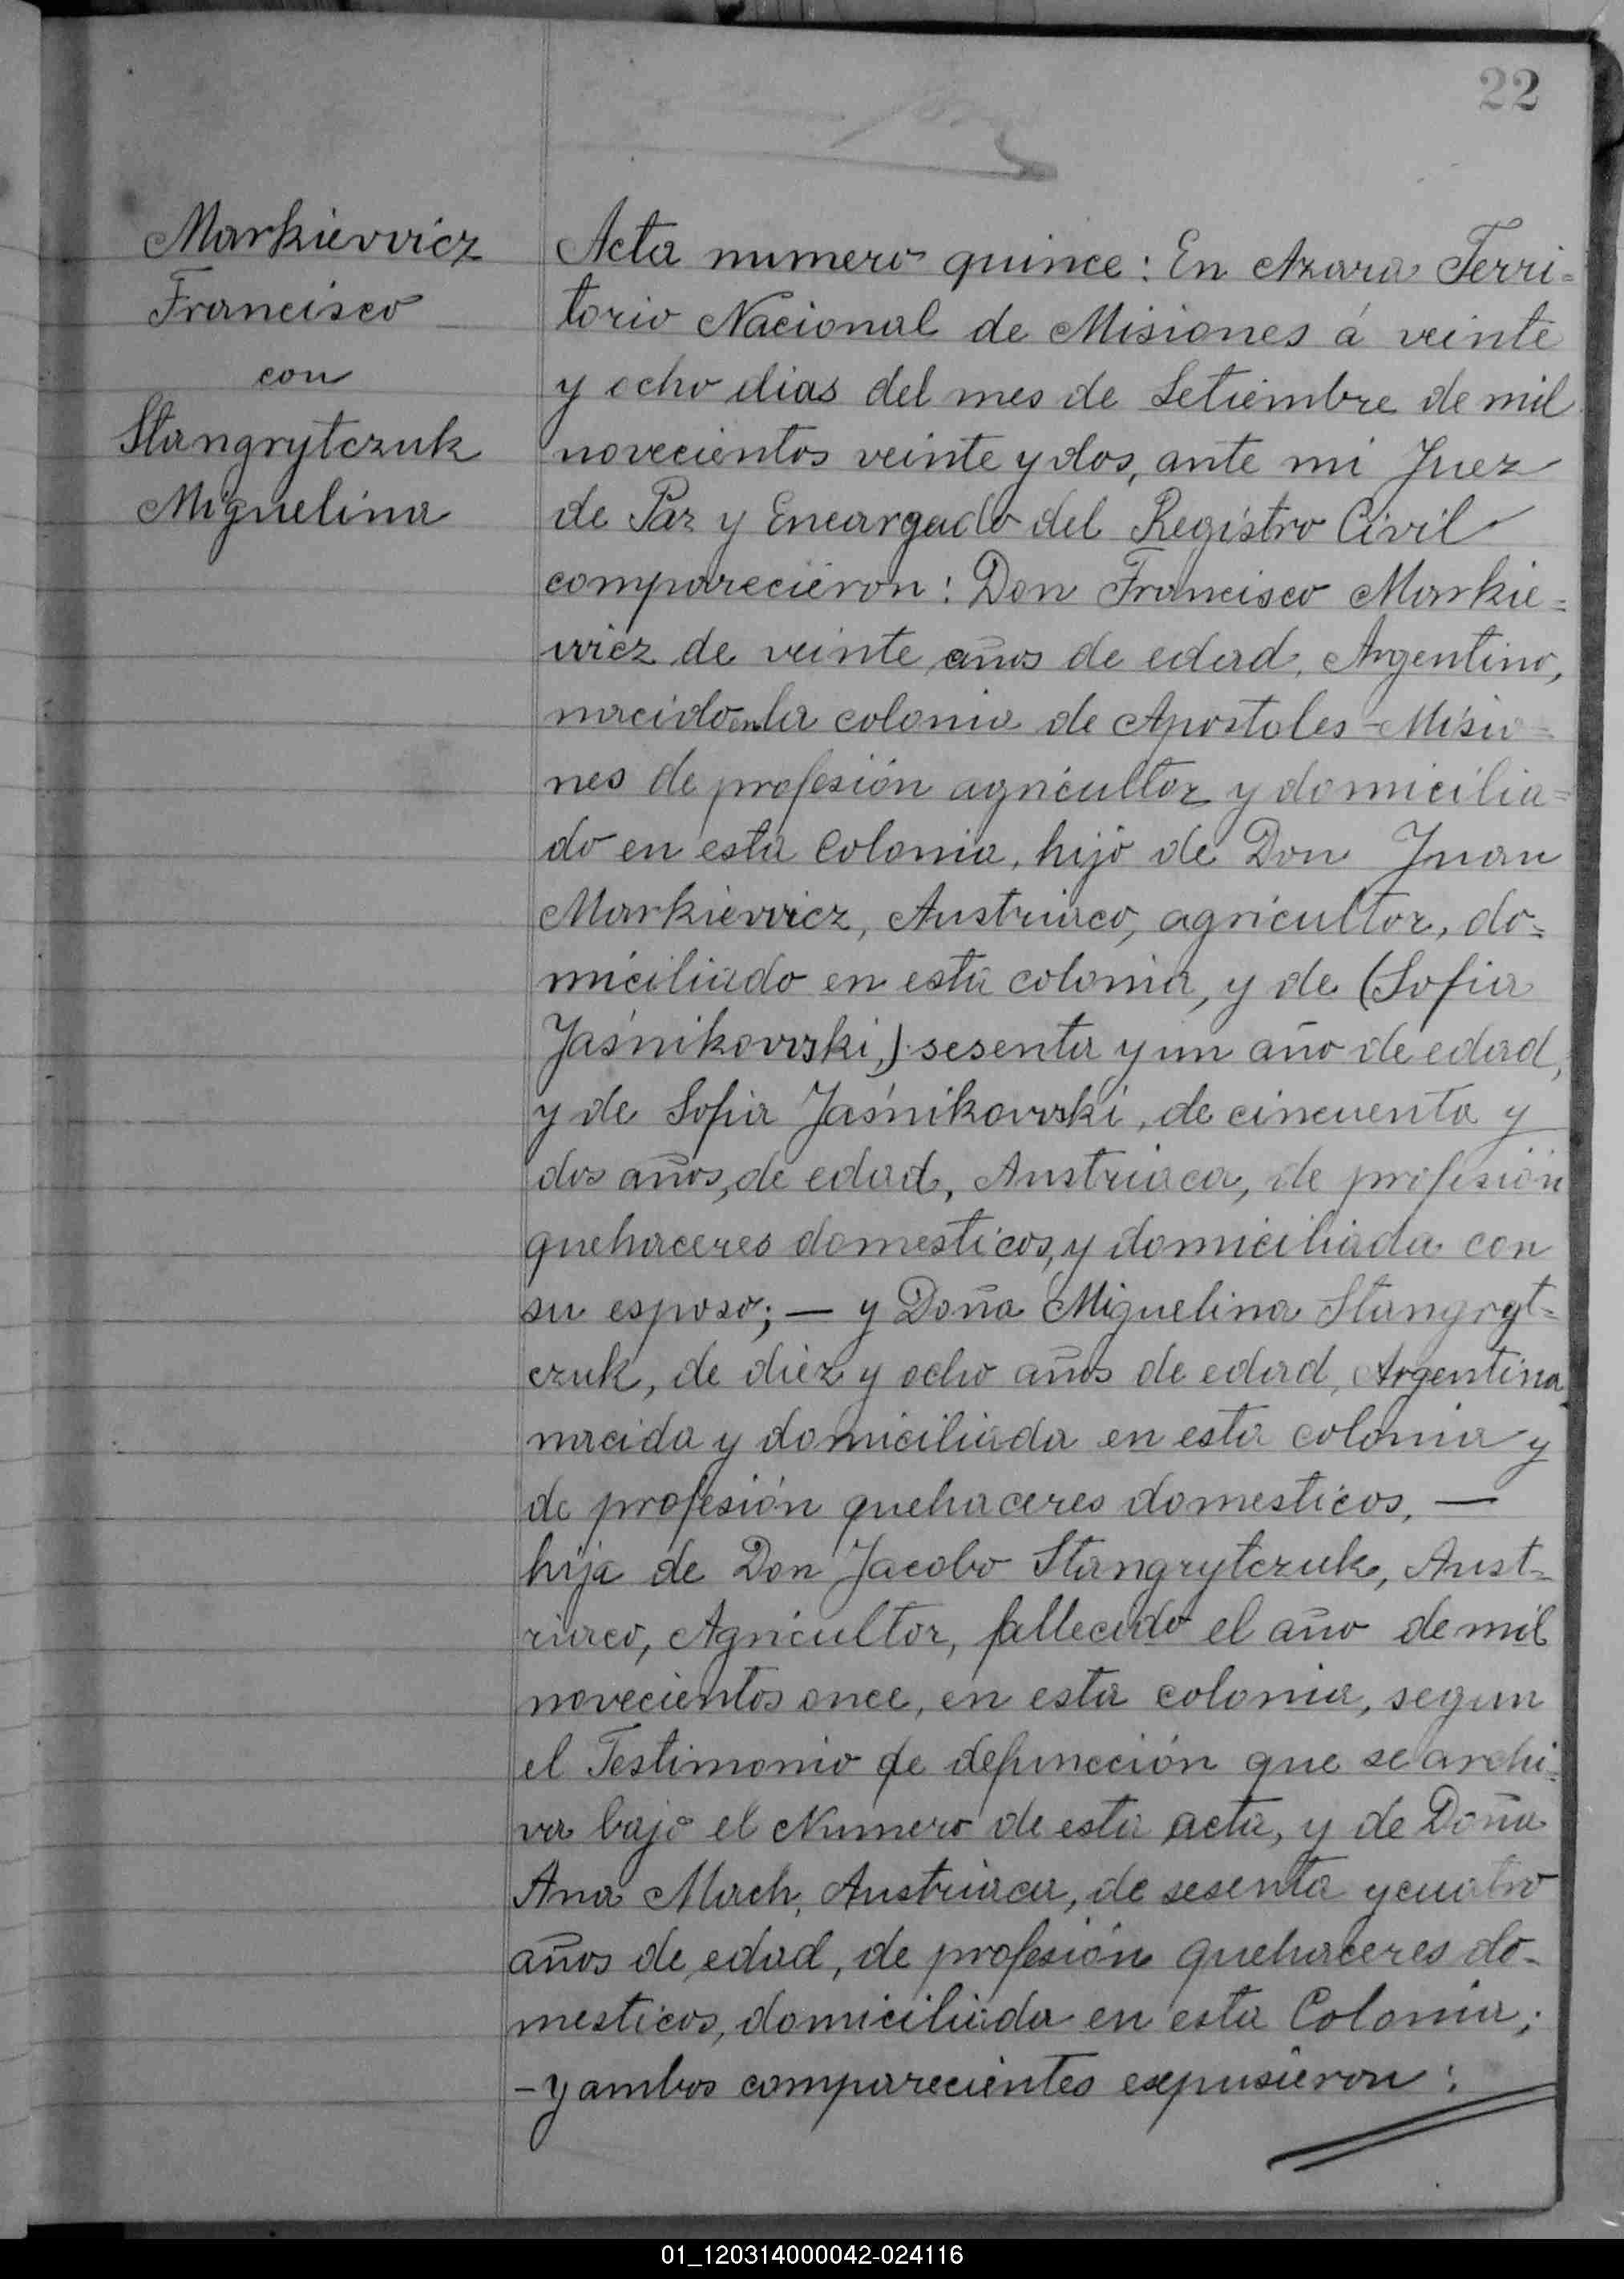 22
Markiewicz
Francisco
con
Stangrytczuk
Miguelina
Acta numero quince: En Azara Terri=
torio Nacional de Misiones á veinte
y ocho dias del mes de Setiembre de mil
novecientos veinte y dos, ante mi Juez
de Paz y Encargado del Registro Civil
comparecieron: Don Francisco Markie=
wicz de veinte años de edad, Argentino,
nacido en la colonia de Apostoles-Misio=
nes de profesión agricultor y domicilia=
do en esta Colonia, hijo de Don Juan
Markiewicz, Austriaco, agricultor, do=
miciliado en esta colonia, y de (Sofia
Jaśnikowski,) sesenta y un año de edad,
y de Sofia Jaśnikowski, de cincuenta y
dos años, de edad, Austriaca, de profesión
quehaceres domesticos, y domiciliada con
su esposo; — y Doña Miguelina Stangryt=
czuk, de diez y ocho años de edad, Argentina,
nacida y domiciliada en esta colonia y
de profesión quehaceres domesticos, —
hija de Don Jacobo Stangrytczuk, Aust=
riaco, Agricultor, fallecido el año de mil
novecientos once, en esta colonia, segun
el Testimonio de defuncción que se archi=
va bajo el Numero de esta acta, y de Doña
Ana Mach, Austriaca, de sesenta y cuatro
años de edad, de profesión quehaceres do-
mesticos, domiciliada en esta Colonia;
- y ambos comparecientes expusieron:
01_120314000042-024116